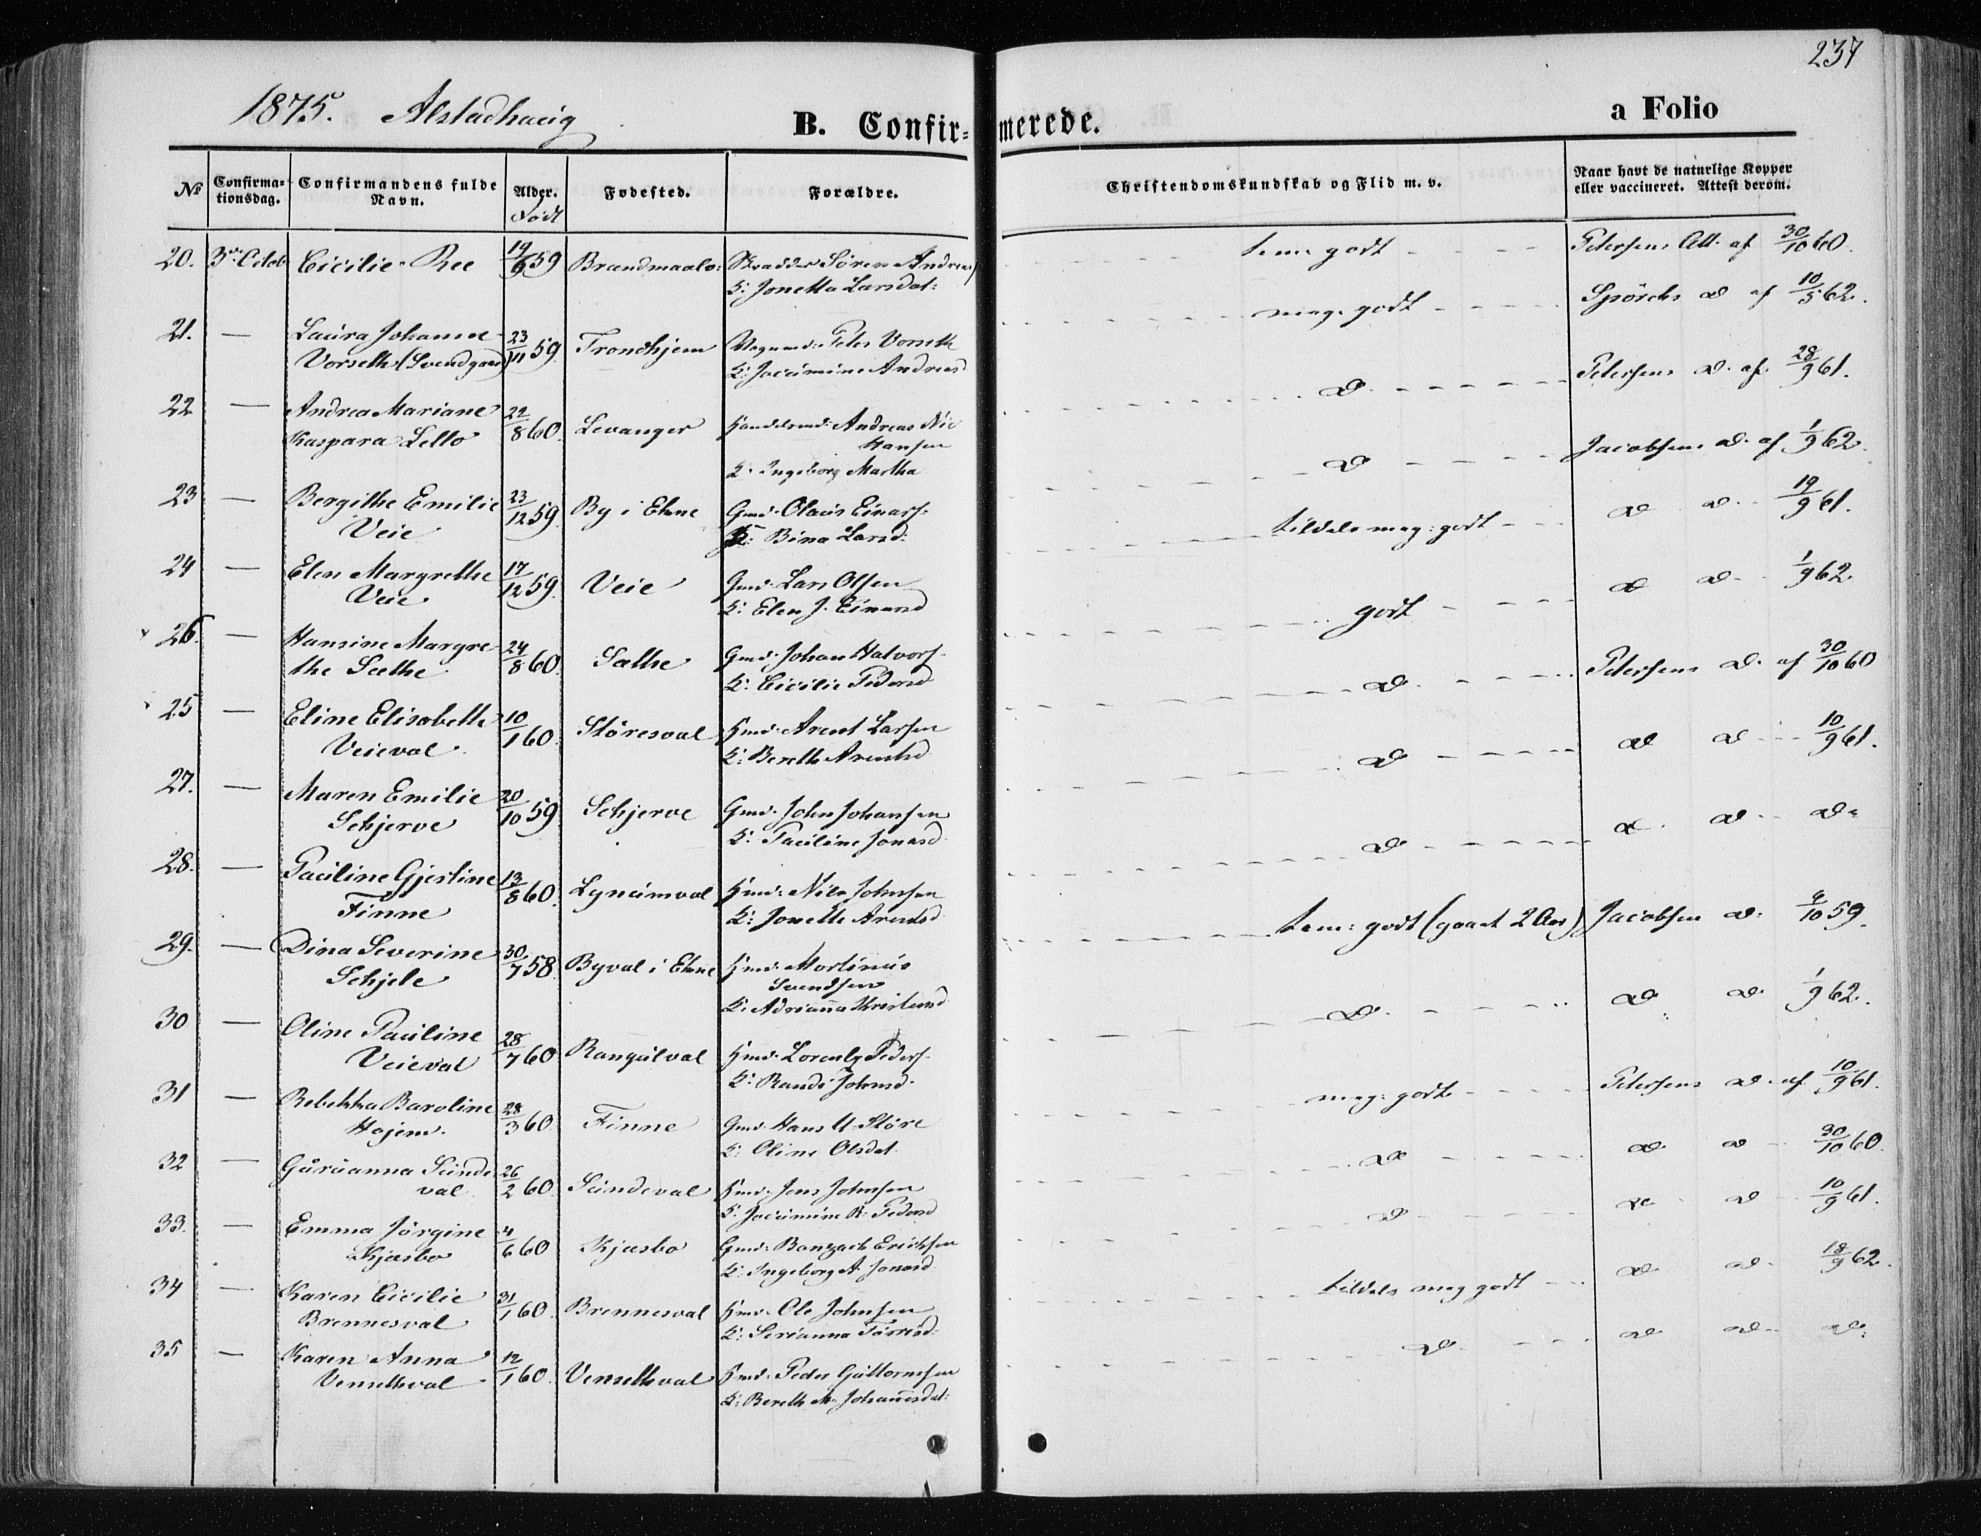 237
1875. Alstadhaug
B. Confir-merede.
a Folio
№ Confirma-tionsdag. Confirmandens fulde Navn. Alder. Født Fødested. Forældre. Christendomskundskab og Flid m. v. Naar havt de naturlige Kopper eller vaccineret. Attest derom.
20. 3die Octob Cicilie Ree 19/9 59 Søren Andreas
K: Jonetta Larsdat:
tem: godt Petersens Att. af 30/10 60.
21. — Laura Johanne
Vorseth (Svendgaard) 23/11 59. Trondhjem Peter Vorseth
K: Jocumine Andreasd
meg: godt af 10/5 62.
22 — Andrea Mariane
Kaspara Sello 22/8 60. Levanger Handelsmd: Andreas Nic
Hansen
K: Ingeborg Martha
do Petersens do. af 28/9 61.
23 — Bergithe Emilie
Veie 23/12 59. By i Ekne Gmd: Olaus Einars.
K: Bina Larsd:
do Jacobsens do. af 1/9 62.
24 — Elen Margrethe
Veie 17/12 59. Veie Gmd. Lars Olsen
K: Elen J. Einarsd
tildels meg: godt do do 19/9 61.
26. — Hansine Margre-
the Sæthe 24/8 60. Sæthe Gmd. Johan Halvors.
K: Cicilie Pedersd
godt do do 1/9 62.
25 — Eline Elisabeth
Veieval 10/1 60. Støresval Hmd: Arent Larsen
K: Bereth Arentsd
do Petersens do. af 30/10 60
27. — Maren Emilie
Schjerve 20/10 59 Schjerve Gmd. John Johansen
K: Pauline Jonasd.
do do do 10/9 61.
28. — Pauline Gjertine
Finne 13/8 60. Lyneimval Hmd: Nils Johnsen
K: Jonette Arentsd
do do do do
29. — Dina Severine
Schjele 30/7 58. Byval i Ekne Hmd: Mortinus
Svendsen
K: Adrianna
tem: godt (gaaet 2 Aar) Jacobsen do: 9/10 59.
30 — Oline Pauline
Veieval 28/7 60 Hmd. Lorents Peders.
K: Randi Johnsd.
do do do 1/9 62.
31 — Rebekka Baroline
Hojem. 28/3 60 Finne Gmd. Hans U. Støre
K: Oline Olsdat.
meg: godt Petersens do. af 10/9 61.
32 — Guruanna Sunde-
val 26/2 60. Sundeval Hmd. Jens Johnsen
K. Jocumine R. Pedersd
do do do 30/10 60.
33. — Emma Jørgine
Kjesbo 4/6 60 Kjesbo Gmd: Erichsen
K: Ingeborg A. Jonasd.
do do do 10/9 61.
34 — Karen Cicilie
Brennesval 31/1 60. Brennesval Hmd. Ole Johnsen
K: Serianna
tildels meg godt do do 18/9 62.
35 — Karen Anna
Vensethval 12/1 60. Vensethval Hmd. Peder Guttormsen
K: Bereth M. Johannesdat:
do do do do.